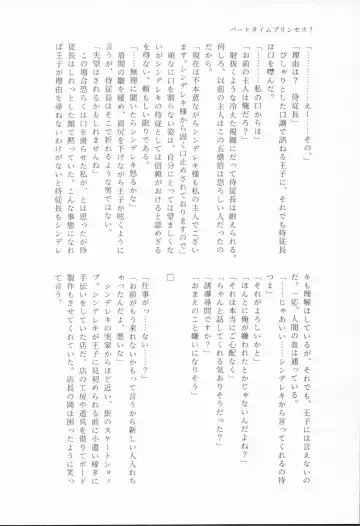 パートタイムプリンセス7
「……え……その、」
「理由は？　侍従長」
　ぴしゃりとした口調で訊ねる王子に、それでも侍従長
は口を噤んだ。
「……私の口からは」
「お前の主人は俺だろう？」
　射抜くような冷えた視線にだって侍従長は耐えられる。
何しろ、以前の主人はこの五億倍は恐ろしい人だったの
だから。
「現在は不本意ながらシンデレキ様も私の主人でござい
ます。シンデレキ様から固く口止めされておりますので」
　頑なに口を割らない姿は、自分にとっては望ましくな
いがシンデレキの侍従としては信頼がおけると認めざる
を得ない。頼もしい限りである。
「……無理に聞いたらシンデレキ怒るかな」
　眉間の皺を緩め、眉尻を下げながら王子が呟くように
言ったからといって、そこで折れるような男ではない。
「失望はされるかもしれませんね」
　この場合恐らくは口を滑らせた私が、とは思ったが侍
従長はしれっとした顔で黙っていた。こんな事態になれ
ば王子が理由を尋ねないわけがないと侍従長もシンデレ
キも理解はしているが、それでも、王子には言えないの
だ。一応、人間の血は通っている。
「……じゃあいい……シンデレキから言ってくれるの待
つよ」
「それがよろしいかと」
「ほんとに俺が嫌われたとかじゃないんだよね？」
「それは本当にご心配なく」
「ちゃんと話してくれる気ありそうだった？」
「誘導尋問ですか？」
「おまえのこと嫌いになりそう」
□
「仕事が……ない……？」
「お前がもう来れないかもって言うから新しい人入れち
ゃったんだよ、悪いな」
　シンデレキの実家からほど近い、街のスケートショッ
プ。シンデレキが王子に見初められる前に小遣い稼ぎに
手伝いをしていた店だ。店の工房や道具を借りてボード
製作もさせてくれていた。店長の岡は困ったように笑っ
て言う。